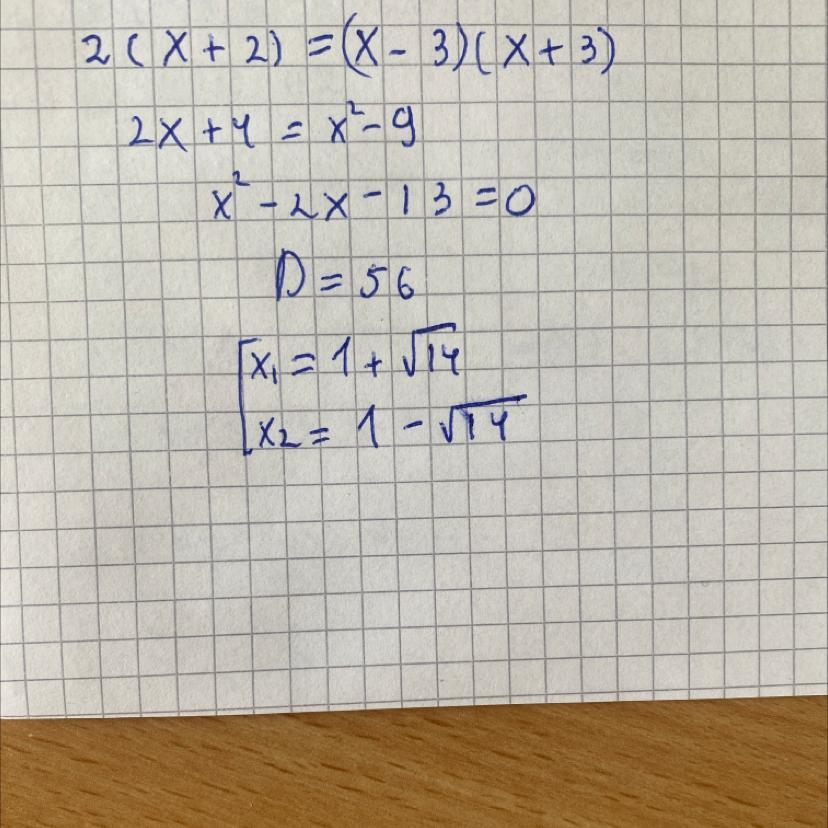 2(x+2)=(x-3)(x+3)
2x+4=x²-9
x²-2x-13=0
D=56
x₁=1+√14
x₂=1-√14